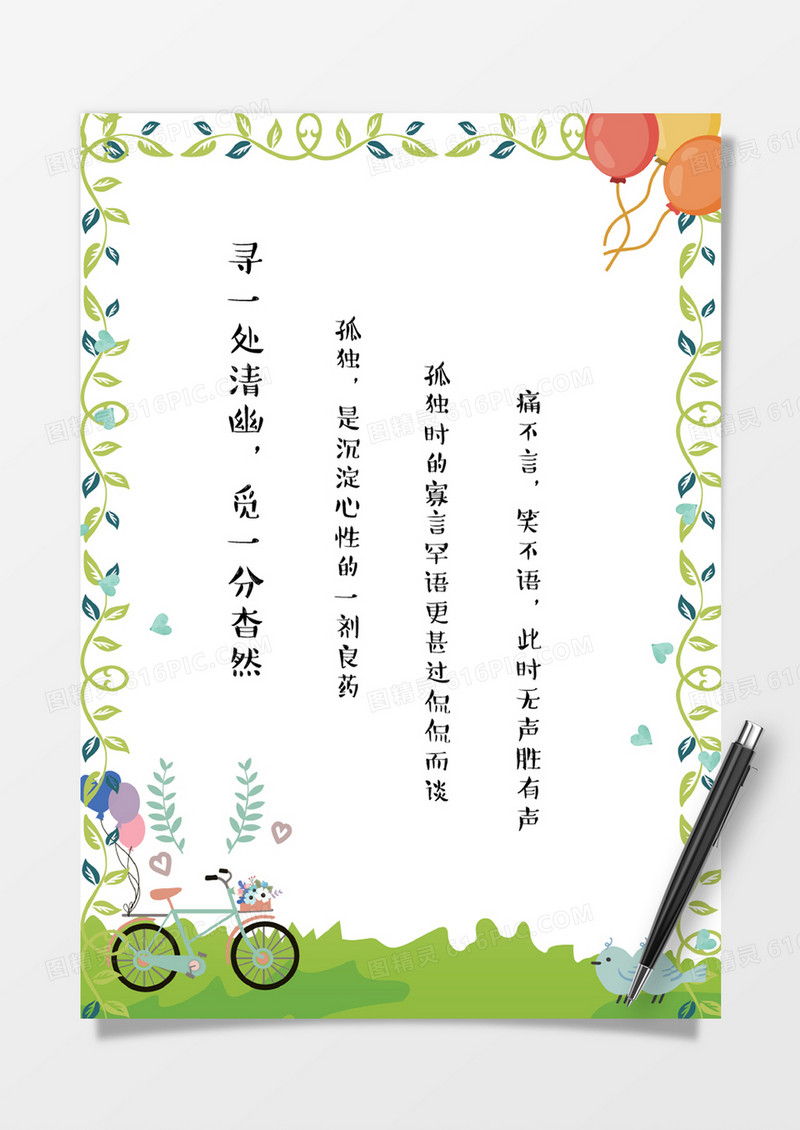 寻一处清幽，觅一分杳然
孤独，是沉淀心性的一剂良药
孤独时的寡言罕语更甚过侃侃而谈
痛不言，笑不语，此时无声胜有声
图精灵 616PIC.COM